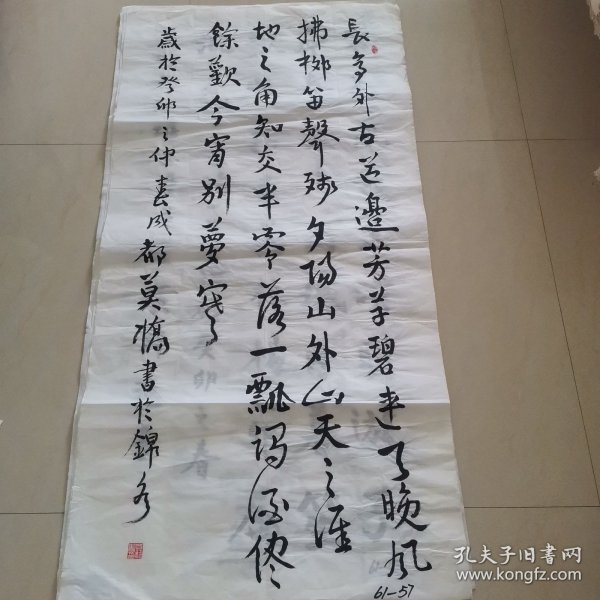 長亭外古道邊芳草碧連天晚風
拂柳笛聲殘夕陽山外山天之涯
地之角知交半零落一瓢濁酒儘
餘歡今宵別夢寒
歲於癸卯之仲春成都莫橋書於錦
61-57
孔夫子旧书网
www.kongfz.com